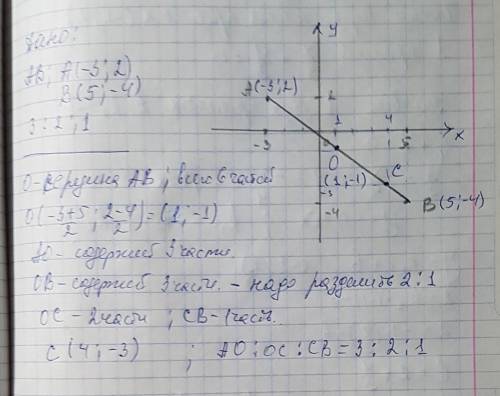 Дано:
AB; A(-3; 2)
B(5; -4)
3:2:1
O-середина AB; всего 6 частей
O(-3+5/2; 2-4/2)=(1; -1)
AO- содержит 3 части.
OB-содержит 3 части. - надо разделить 2:1
OC-2 части; CB-1 часть.
C(4; -3) ; AO:OC:CB=3:2:1
y
A(-3; 2)
2
1
4
-3
5
x
O
(1; -1)
C
-3
-4
B(5; -4)